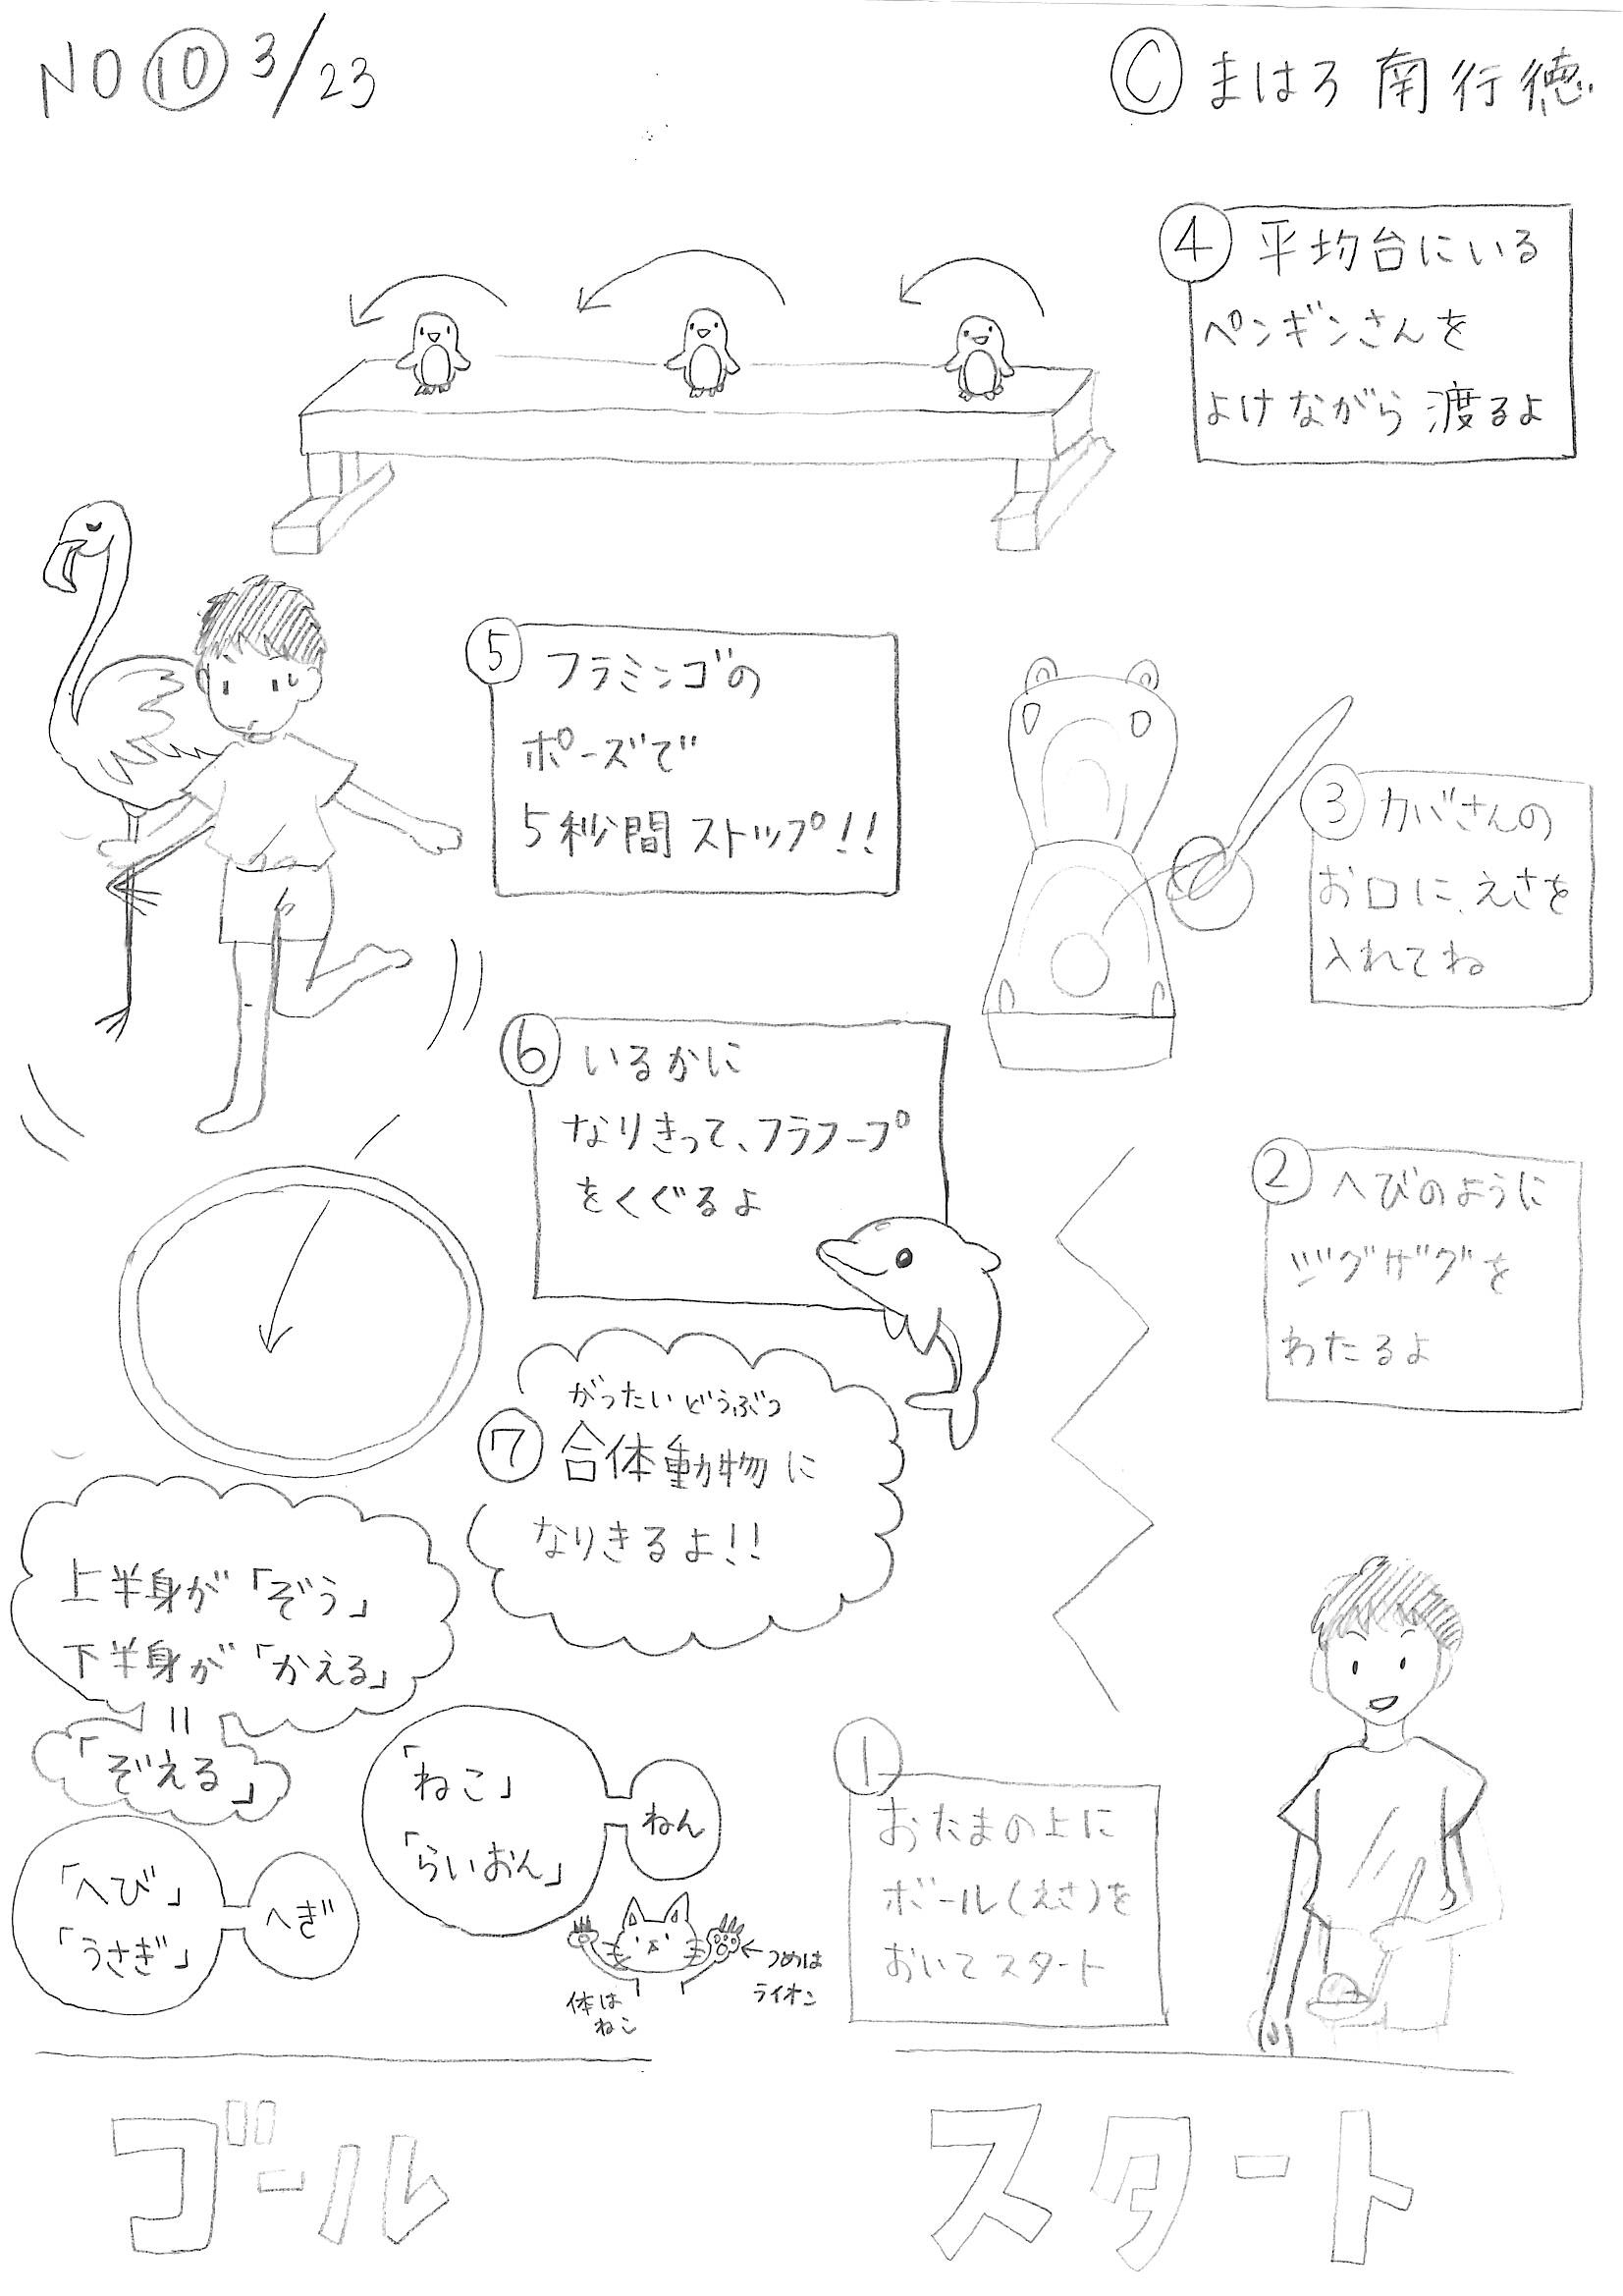 NO ⑩ 3/23
Ⓒ まはろ 南行徳
④ 平均台にいる
ペンギンさんを
よけながら 渡るよ
⑤ フラミンゴの
ポーズで
5秒間 ストップ!!
③ カバさんの
お口に、えさを
入れてね
⑥ いるかに
なりきって、フラフープ
をくぐるよ
② へびのように
ジグザグを
わたるよ
がったい どうぶつ
⑦ 合体動物に
なりきるよ!!
上半身が「ぞう」
下半身が「かえる」
=
「ぞえる」
「ねこ」
「らいおん」
ねん
「へび」
「うさぎ」
へぎ
←つめは
ライオン
体は
ねこ
① おたまの上に
ボール(えさ)を
おいてスタート
ゴール
スタート